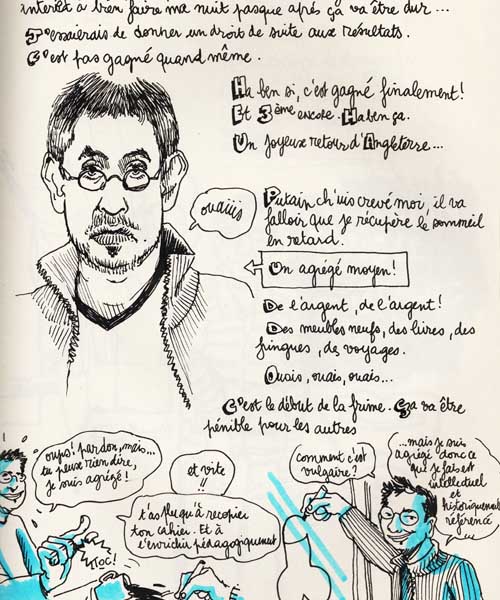 intérêt à bien faire ma nuit pasque après ça va être dur...
J'essaierais de donner un droit de suite aux résultats.
C'est pas gagné quand même.
Ha ben si, c'est gagné finalement!
Et 3ème encore. Ha ben ça.
Un joyeux retour d'Angleterre...
ouaiiis
Putain ch'uis crevé moi, il va
falloir que je récupère le sommeil
en retard.
Un agrégé moyen!
De l'argent, de l'argent!
Des meubles neufs, des livres, des
fringues, des voyages.
Ouais, ouais, ouais...
C'est le début de la frime. Ça va être
pénible pour les autres
oups! pardon, mais...
tu peux rien dire,
je suis agrégé!
TOC!
et vite
!!
t'as plus qu'à recopier
ton cahier. Et à
l'enrichir pédagogiquement
comment c'est
vulgaire?
...mais je suis
agrégé donc ce
que je fais est
intellectuel
et
historiquement
référencé
...